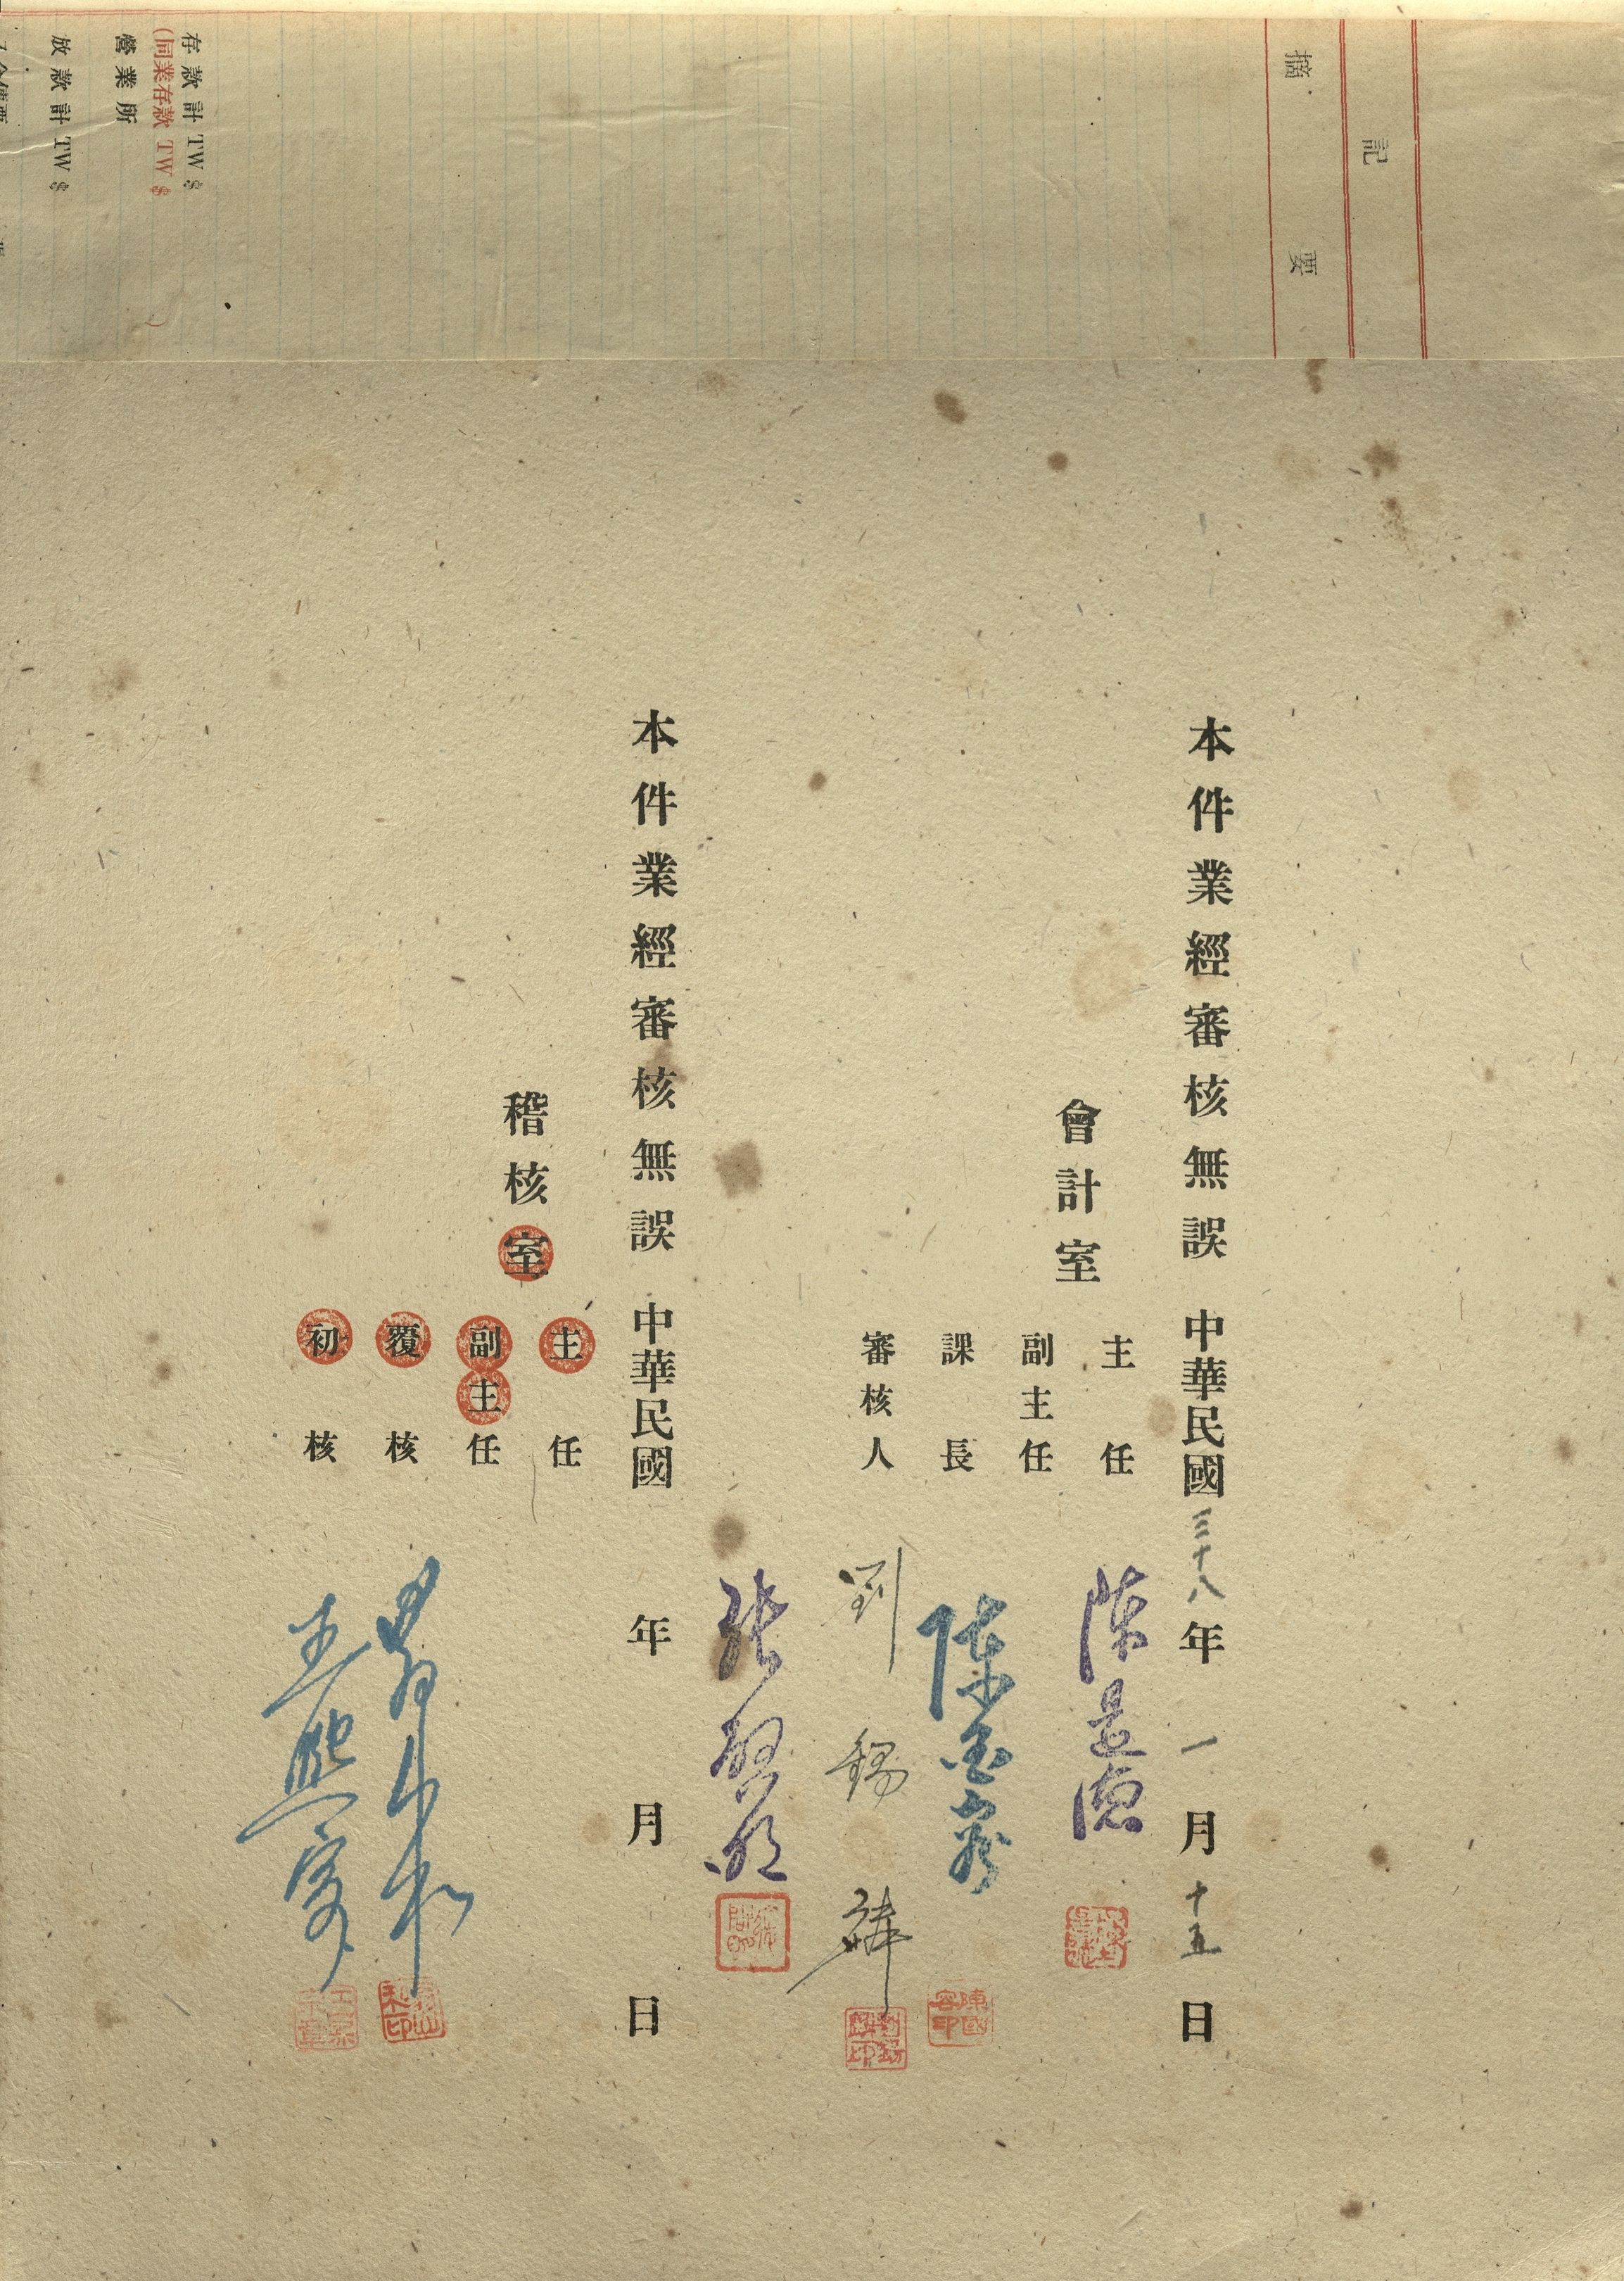 記
摘要
存款計 TW $
(同業存款 TW $
營業所
放款計 TW $
本件業經審核無誤 中華民國三十八年一月十五日
會計室
主任
副主任
課長
審核人 劉錫
本件業經審核無誤 中華民國 年 月 日
稽核室
主任
副主任
覆核
初核 王熙宗